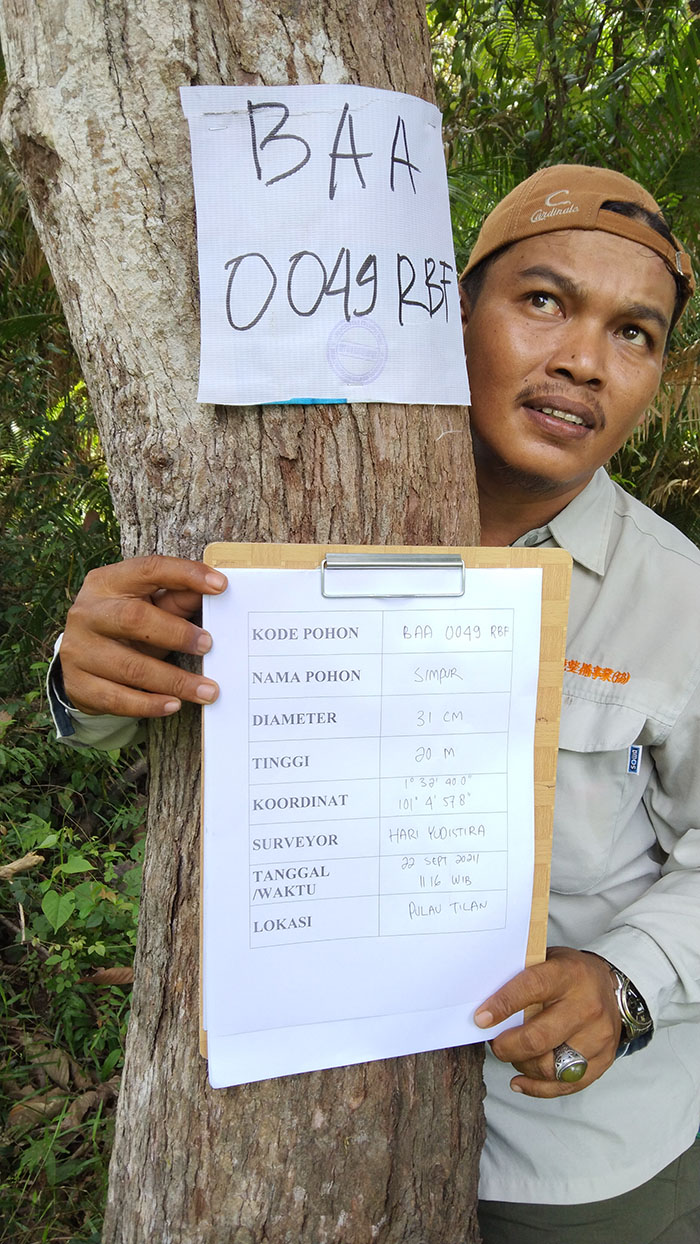 BAA
0049 RBF
C
Cardinals
KODE POHON BAA 0049 RBF
NAMA POHON SIMPUR
DIAMETER 31 CM
TINGGI 20 M
KOORDINAT 1° 32' 40.0"
101° 4' 57.8"
SURVEYOR HARI YUDISTIRA
TANGGAL 22 SEPT 2021/
/WAKTU 11 16 WIB
LOKASI PULAU TILAN